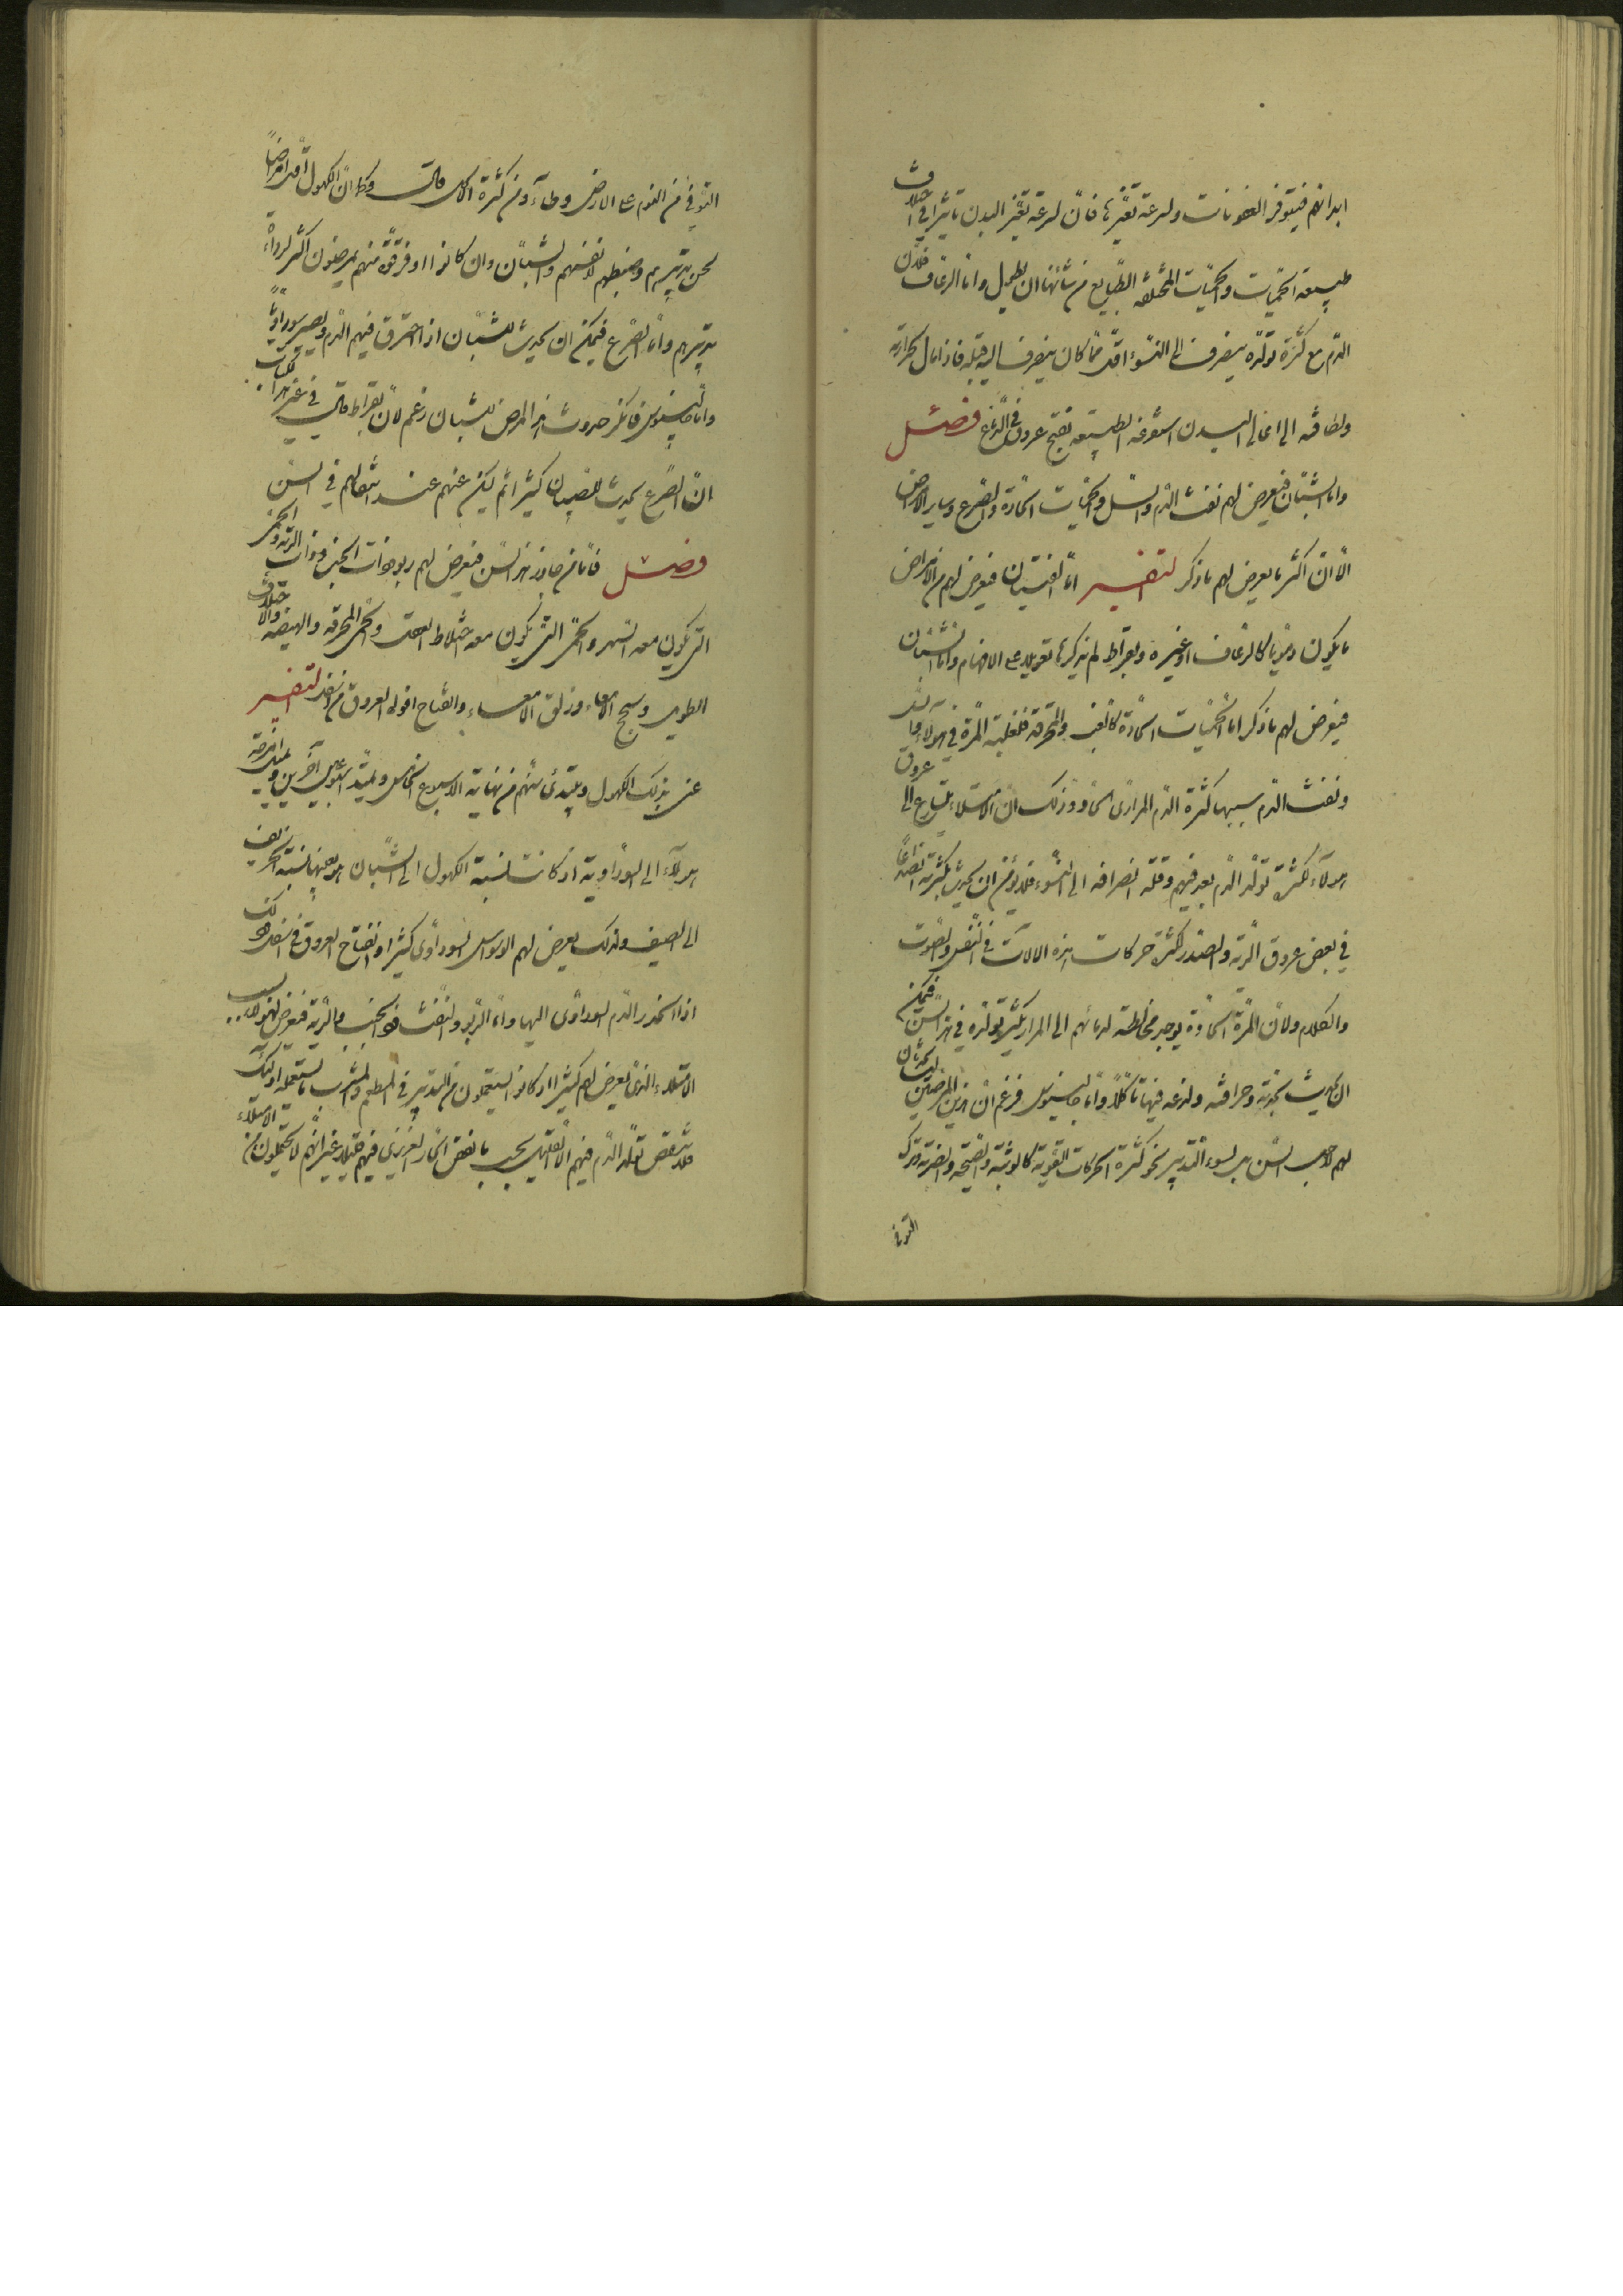 ابدانهم فيتوفر العفونات ولسرعة تغيرها فان لسرعة تغير البدن تاثيرا في اختلاف
طبيعة الحميات والحميات المختلفة الطبايع من شانها ان تطول واما الرعاف فلان
الدم مع كثرة تولده ينصرف الى النشوء اقل مما كان ينصرف اليه قبله فاذا مال لحرارته
ولطافته الى اعالي البدن استفرغه الطبيعة بفتح عروق في الدماغ فصل
واما الشبان فيعرض لهم نفث الدم والسل والحميات الحادة والصرع وساير الامراض
الا ان اكثر ما يعرض لهم ما ذكر التفسير اما الفتيان فيعرض لهم من الامراض
ما يكون دمويا كالرعاف او غيره وبقراط لم يذكرها تعويلا على الافهام واما الشبان
فيعرض لهم ما ذكر اما الحميات الحادة كالغب والمحرقة فلغلبة المرة في هولاء
ونفث الدم سببها كثرة الدم المراري الحاد وذلك ان الامتلاء يتسارع الى عروق
هولاء لكثرة تولد الدم بعد فيهم وقلة انصرافه الى النشوء فلا يؤمن ان يحدث بكثرته انصداعا
في بعض عروق الرية والصدر لكثرة حركات هذه الالات في التنفس والصوت
والكلام ولان المرة الحادة يوجد مخالطة لدمائهم الى المرار يكثر تولده في هذا السن فيمكن
ان يحدث بحدته وحرافته ولذعه فيها تاكلا واما جالينوس فزعم ان هذين المرضين ليسا يحدثان
لهم لاجل السن بل لسوء التدبير نحو كثرة الحركات القوية كالوثبة والصيحة والضربة وترك
التوقي
التوقي من النوم على الارض وطاء ومن كثرة الاكل قال بقراط ان الكهول اقل امراضا
لحسن تدبيرهم وضبطهم لانفسهم والشبان وان كانوا اوفر قوة منهم يمرضون اكثر لرداءة
تدبيرهم واما الصرع فيمكن ان يحدث للشبان اذا احترق فيهم الدم ويصير سوداويا
واما جالينوس فانكر حدوث هذا المرض للشبان زعم لان بقراط قال في غير هذا الكتاب
ان الصرع يحدث للصبيان كثيرا ثم يسكن عنهم عند انتقالهم في السن
فصل فاما من جاوز هذا السن فيعرض لهم ربو وذات الجنب وذات الرية والحمى
التي يكون معه السهر والحمى التي يكون معه اختلاط العقل والحمى المحرقة والهيضة والاختلاف
الطويل وسحج الامعاء وزلق الامعاء وانفتاح افواه العروق من اسفل التفسير
عنى بذلك الكهول ويبتدئ سنهم من نهاية الاسبوع الخامس ويمتد اسبوعين آخرين ويميل امزجة
هولاء الى السوداوية اذ كانت نسبة الكهول الى الشبان هو بعينها نسبة الخريف
الى الصيف ولذلك يعرض لهم الوسواس السوداوى كثيرا وانفتاح العروق في اسفل كذلك
اذا انحدر الدم السوداوى اليها واما الربو والنفث وذات الجنب والرية فيعرض لهولاء بسبب
الامتلاء الذى يعرض لهم كثيرا اذ كانوا يستعملون من التدبير في المطعم والمشرب ما يستعمله اولئك
فلا ينقص تولد الدم فيهم الا القليل بحسب ما نقص الحار الغريزي فيهم قليلا غير انهم لا يحتملون من الامتلاء